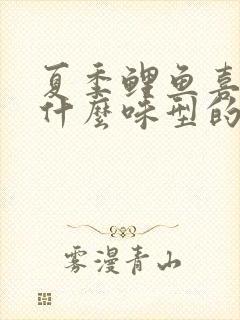 夏季鲤鱼喜
什麼味型的
雾漫青山